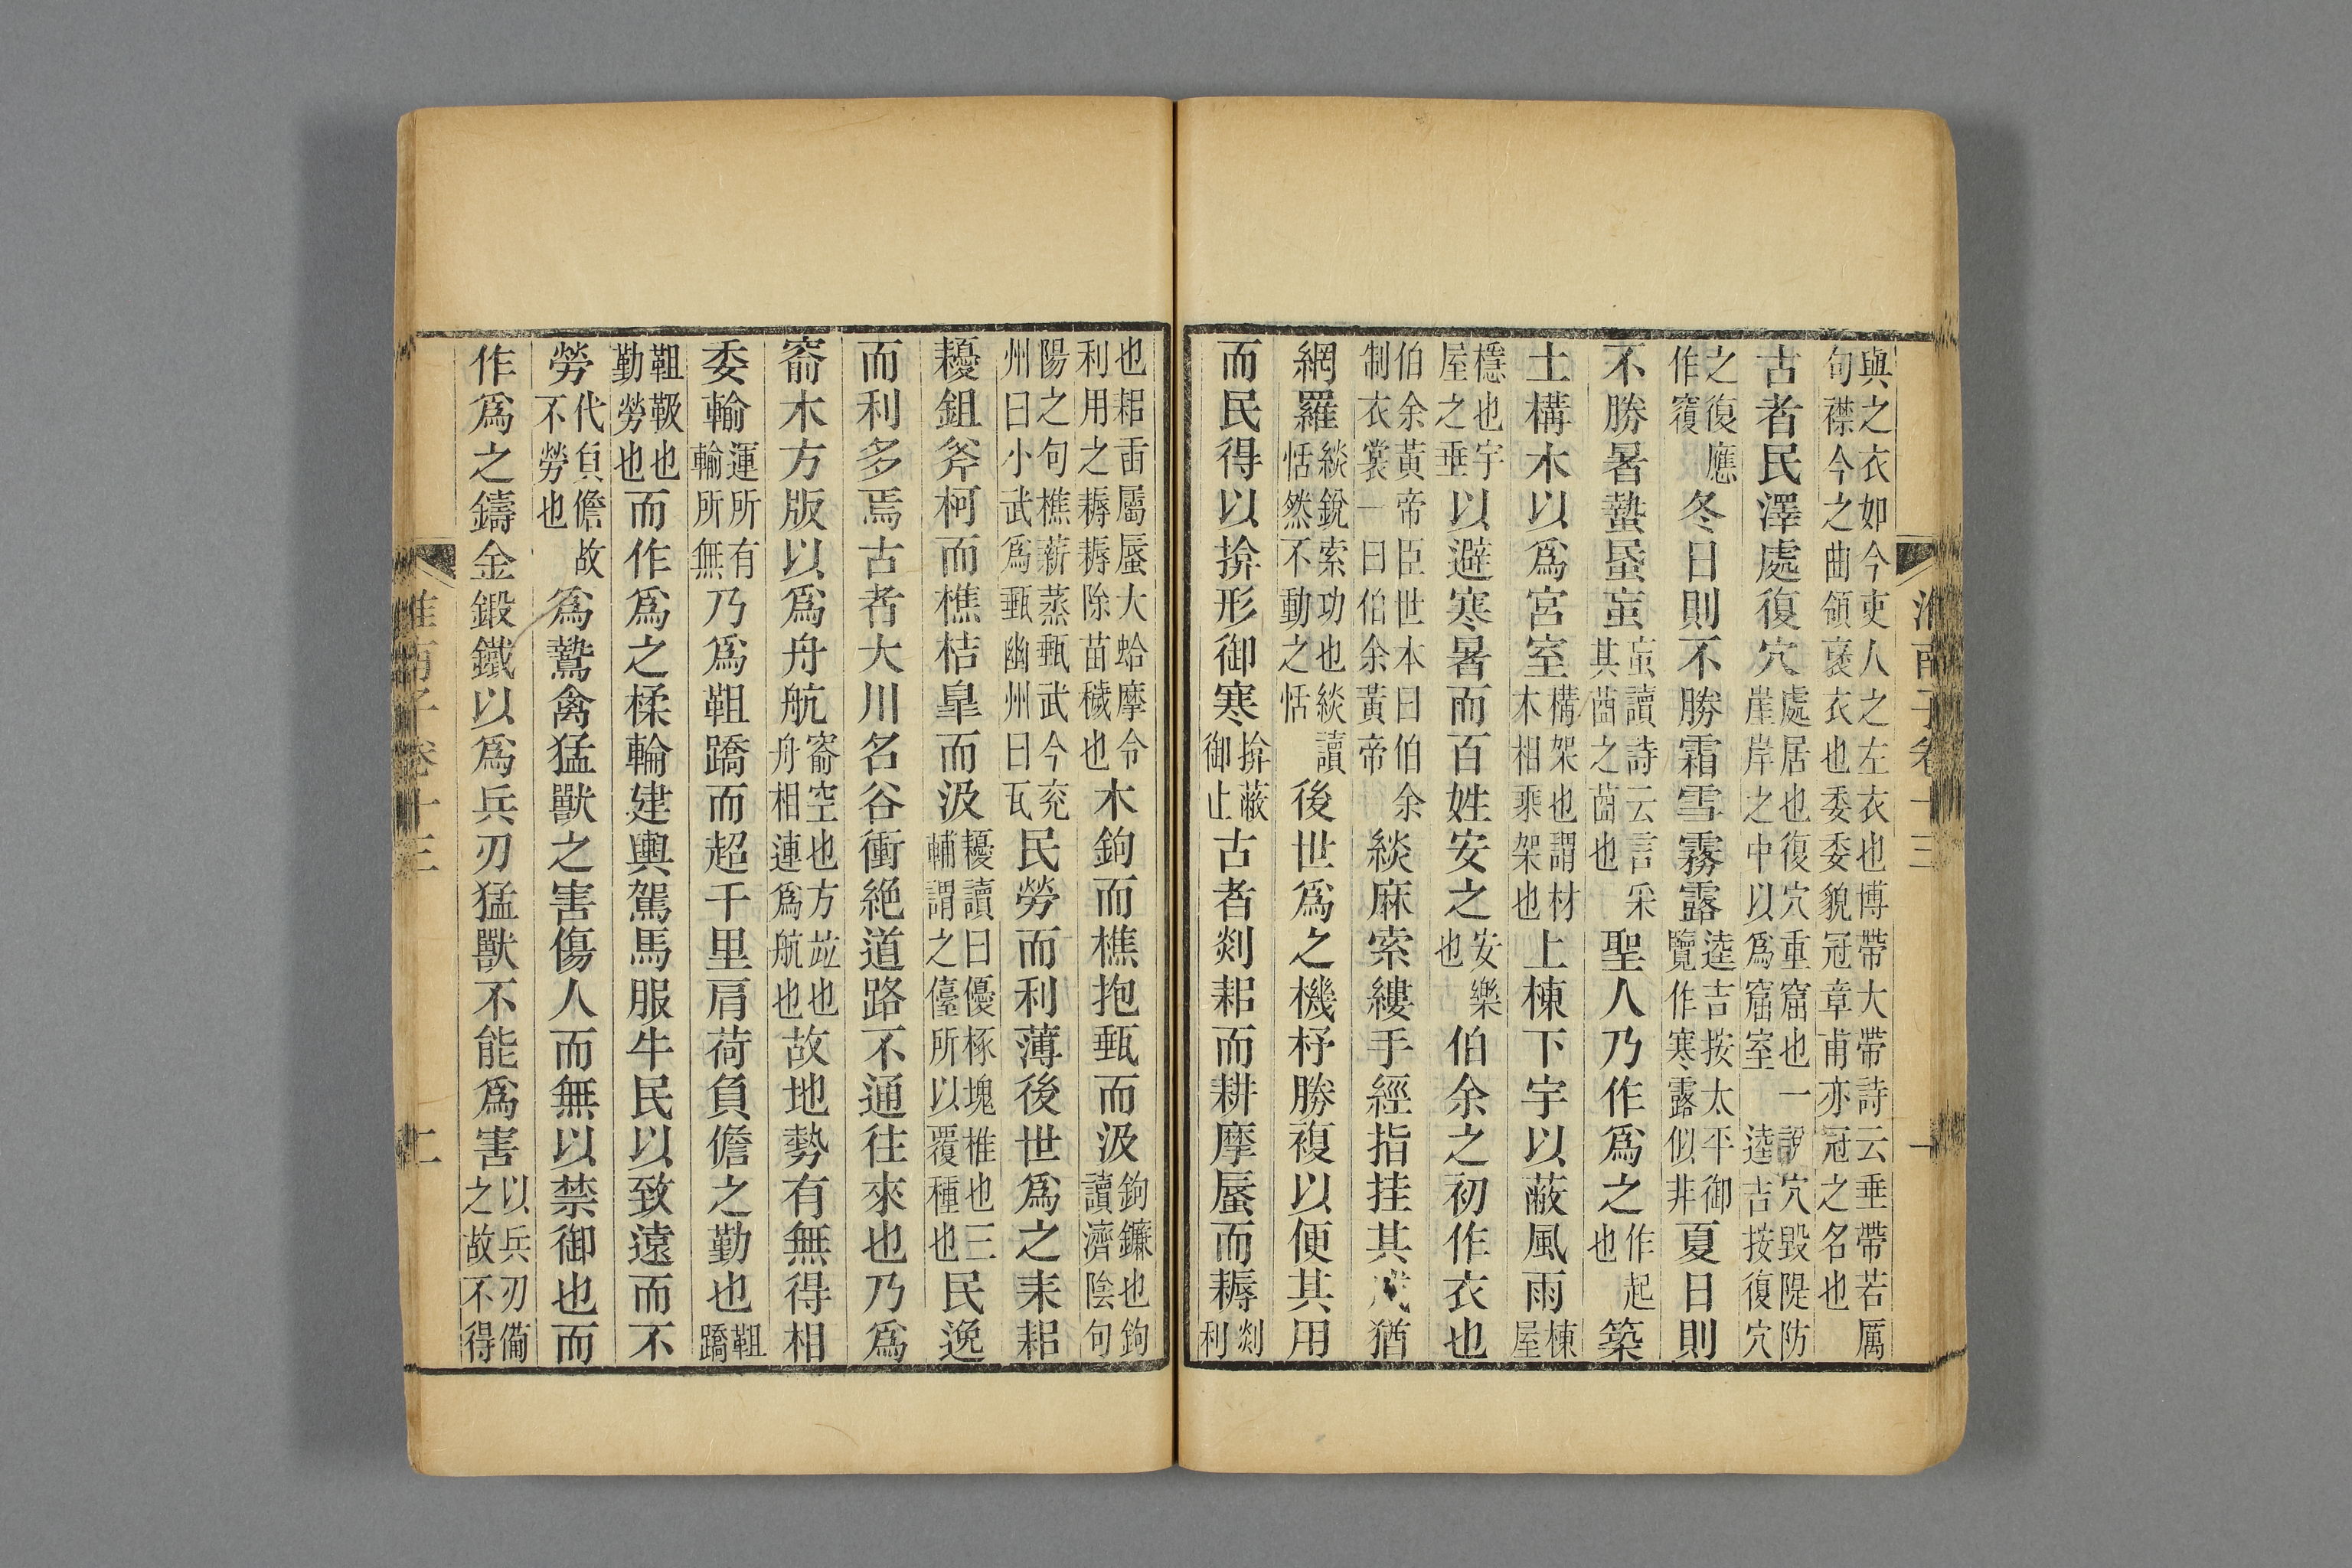 淮南子卷十三 一
與之衣如今吏人之左衣也博帶大帶詩云垂帶若厲句襟今之曲領褎衣也委委貌冠章甫亦冠之名也
古者民澤處復穴處居也復穴重窟也一說穴毀隄防崖岸之中以爲窟室逵吉按復穴
之復應作覆冬日則不勝霜雪霧露逵吉按太平御覽作寒露似非夏日則
不勝暑蟄蟁䖟䖟讀詩云言采其莔之莔也聖人乃作爲之作起也築
土構木以爲宮室構架也謂材木相乘架也上棟下宇以蔽風雨棟屋
檼也宇屋之垂以避寒暑而百姓安之安樂也伯余之初作衣也
伯余黃帝臣世本曰伯余制衣裳一曰伯余黃帝緂麻索縷手經指挂其成猶
網羅緂銳索功也緂讀恬然不動之恬後世爲之機杼勝複以便其用
而民得以揜形御寒揜蔽御止古者剡耜而耕摩蜃而耨剡利
也耜臿屬蜃大蛤摩令利用之耨耨除苗穢也木鉤而樵抱甀而汲鉤鐮也鉤讀濟陰句
陽之句樵薪蒸甀武今兖州曰小武爲甀幽州曰瓦民勞而利薄後世爲之耒耜
耰鉏斧柯而樵桔皐而汲耰讀曰優椓塊椎也三輔謂之儓所以覆種也民逸
而利多焉古者大川名谷衝絶道路不通往來也乃爲
窬木方版以爲舟航窬空也方竝也舟相連爲航也故地勢有無得相
委輸運所有輸所無乃爲靻蹻而超千里肩荷負儋之勤也靻蹻
靻靸也勤勞也而作爲之楺輪建輿駕馬服牛民以致遠而不
勞代負儋故不勞也爲鷙禽猛獸之害傷人而無以禁御也而
作爲之鑄金鍛鐵以爲兵刃猛獸不能爲害以兵刃備之故不得
淮南子卷十三 二